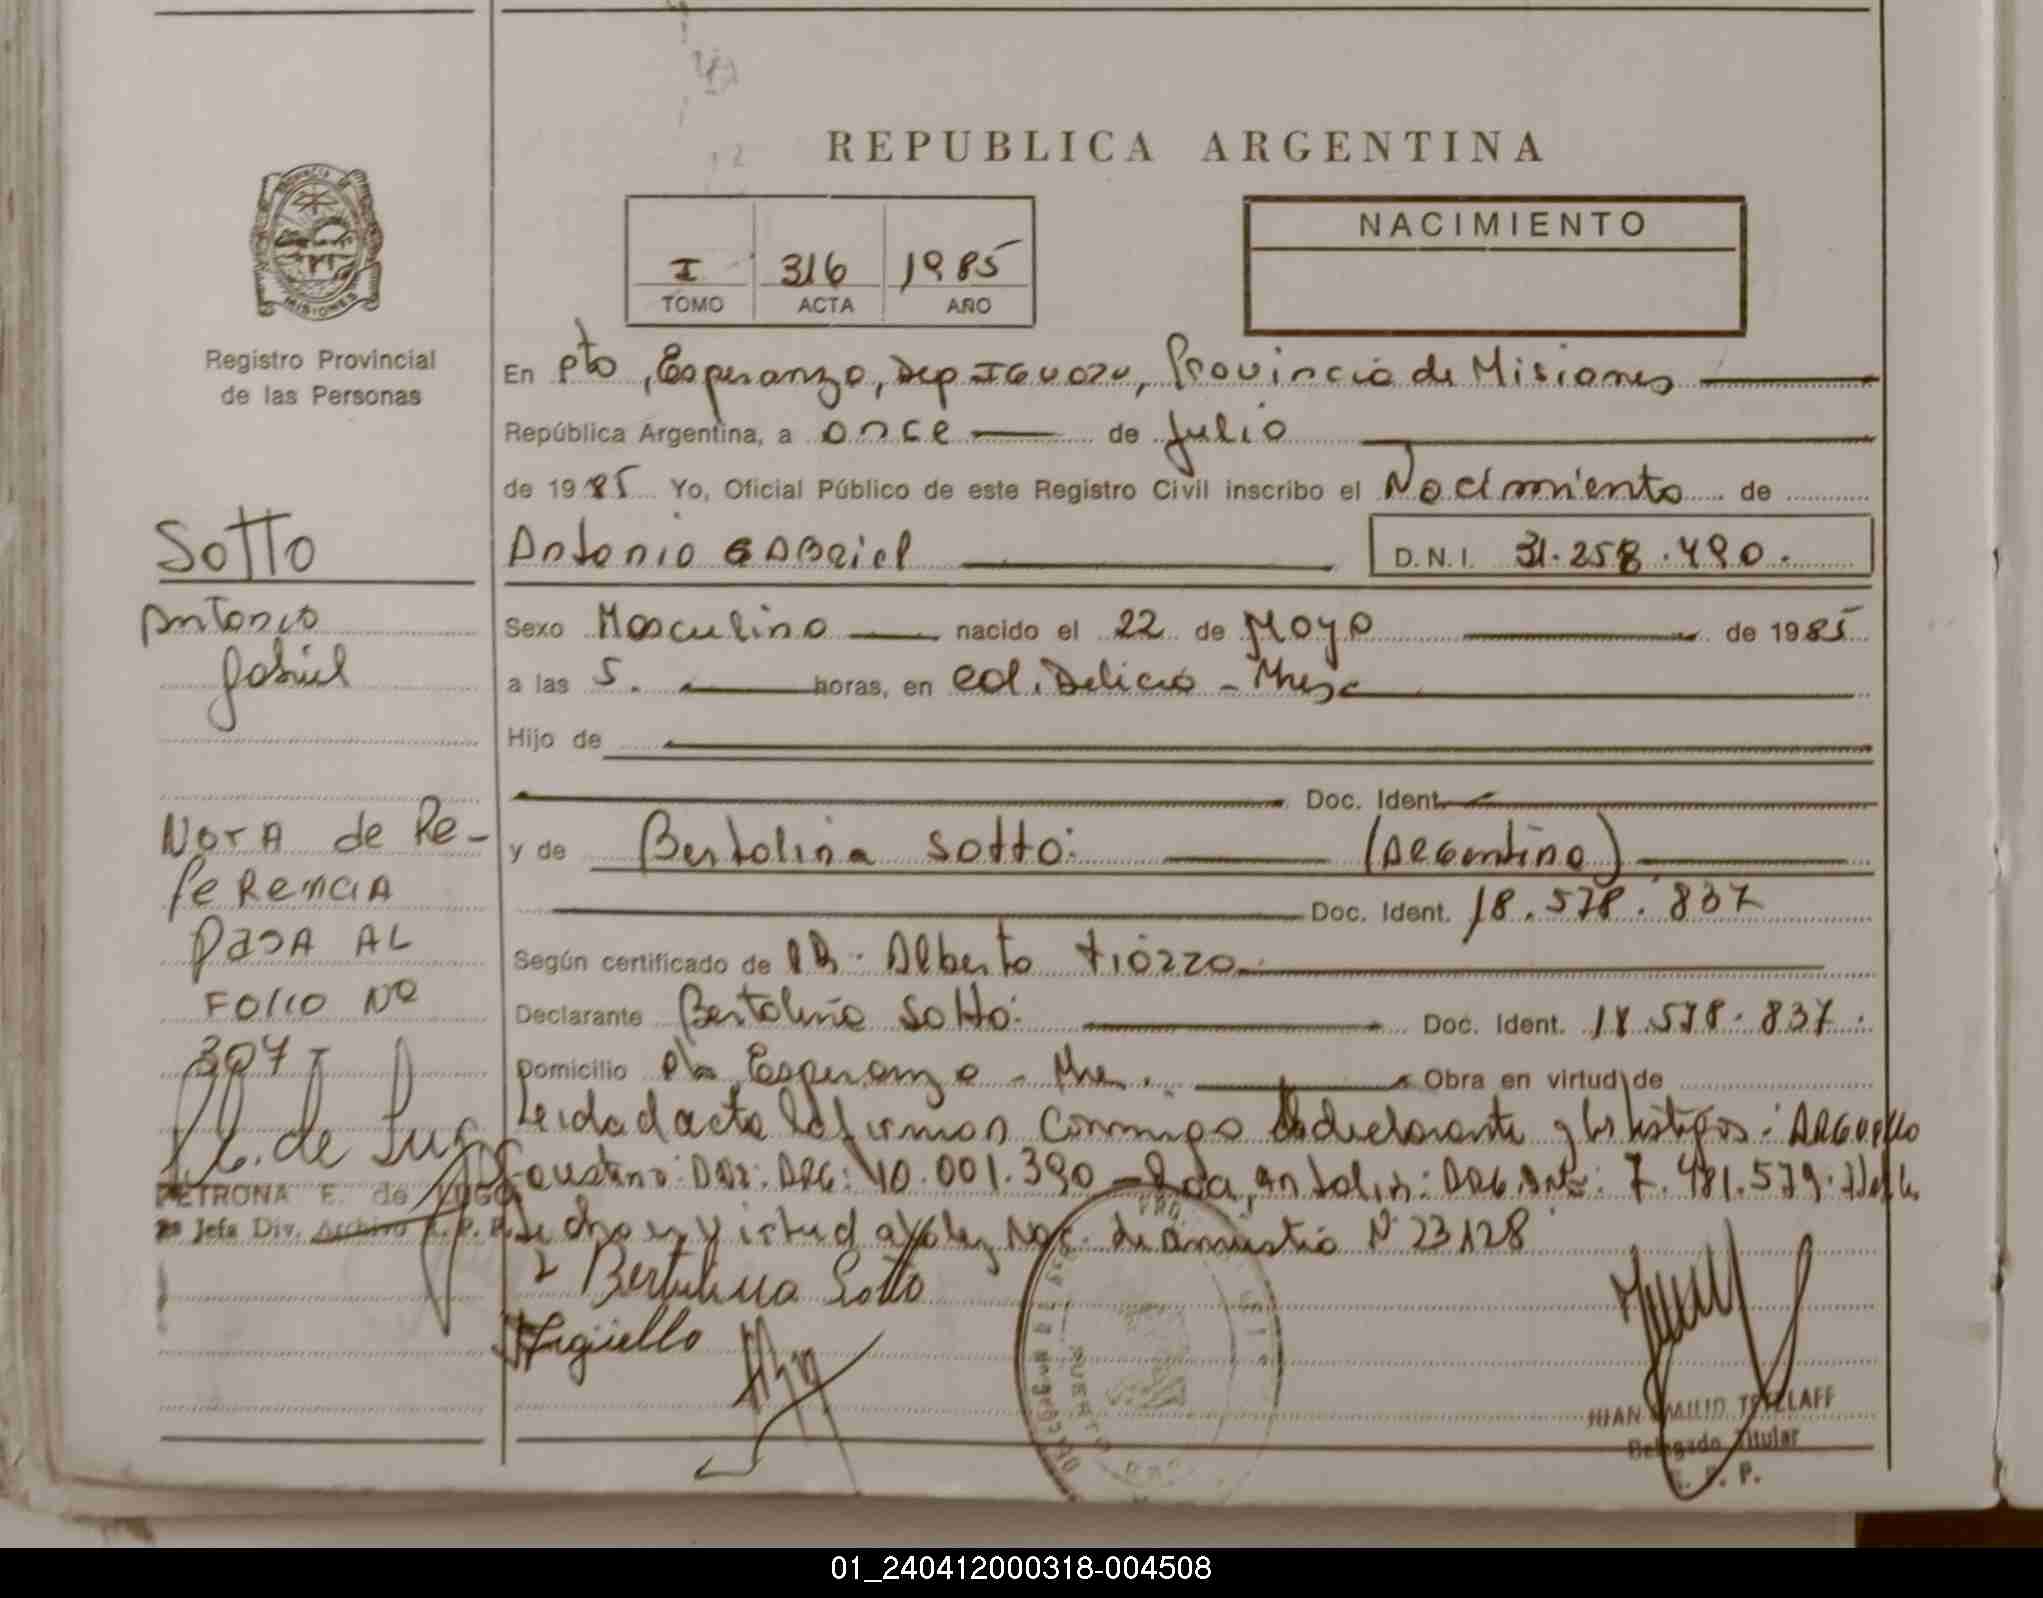 REPUBLICA ARGENTINA
PROVINCIA DE
MISIONES
Registro Provincial
de las Personas
I 316 1985
TOMO ACTA AÑO
NACIMIENTO
En Pto, Esperanza, Dep IGUAZU, Provincia de Misiones
República Argentina, a once de Julio
de 1985 Yo, Oficial Público de este Registro Civil inscribo el Nacimiento de
Antonio GABRiel D.N.I. 31.258.490.
Sotto
Antonio
Gabriel
Sexo Masculino nacido el 22 de Mayo de 1985
a las 5. horas, en Col. Delicia -
Hijo de
Doc. Ident.
y de Bertolina Sotto: (ARGentina)
Doc. Ident. 18.578.837
Según certificado de Alberto
Declarante Bertolina Sotto: Doc. Ident. 18.578.837.
Domicilio Pto Esperanza - Obra en virtud de
NOTA de Re-
feRenciA
PasA AL
FOLIO Nº
307
Leida el acta la firman conmigo la declarante y los testigos: ARGUELLO
Faustino: ARG: 10.001.390 - antolin: ARG. 7.481.579.
virtud a Ley Nac. de amnistia Nº 23128
Bertolina Sotto
Argüello
PETRONA E. de LUGO
Jefa Div. Archivo R. P. P.
PUERTO
JUAN EMILIO TETZLAFF
Delegado Titular
R. P. P.
01_240412000318-004508